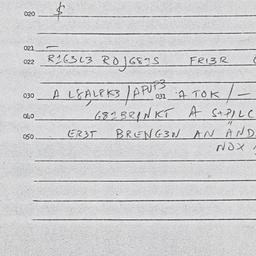 020 $
021 —
022 R1G3L3 ROJG81S FRI3R
030 A L8ALPK3/APUP3 031 A TOK/—
040 G81BRINKT A
050 ER3T BRENG3N AN ÄND
NOX